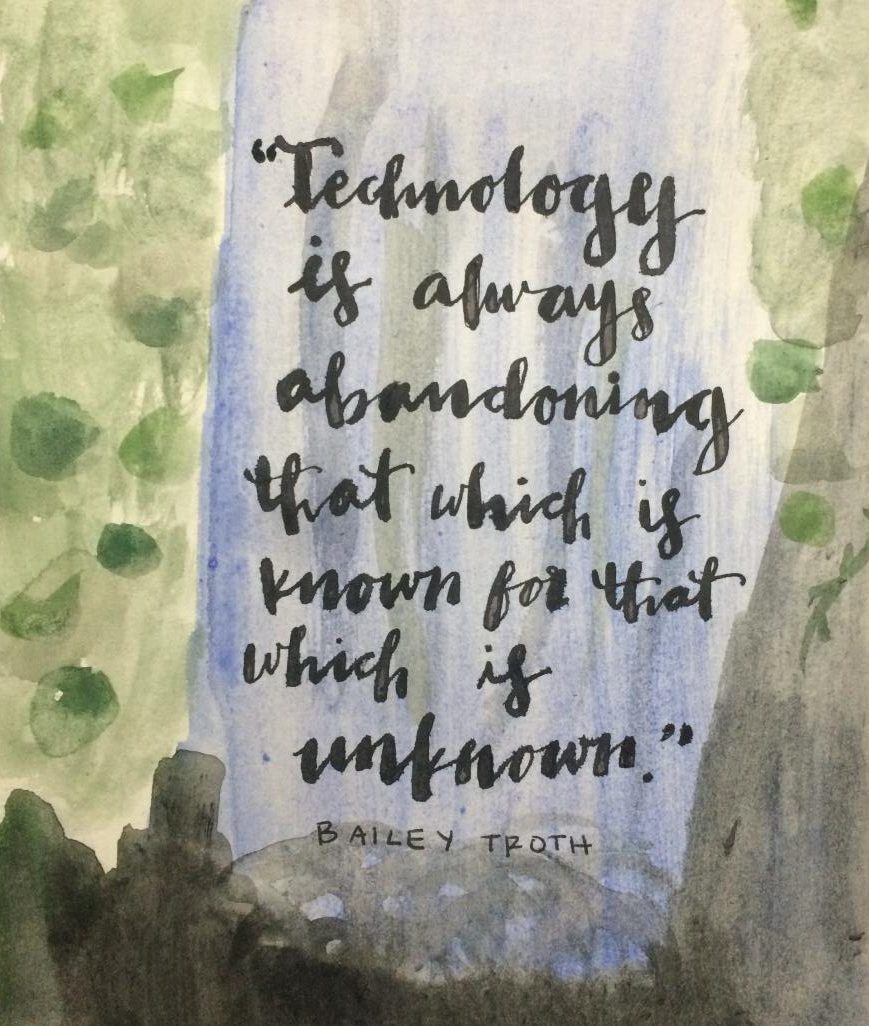 "Technology
is always
abandoning
that which is
known for that
which is
unknown."
BAILEY TROTH